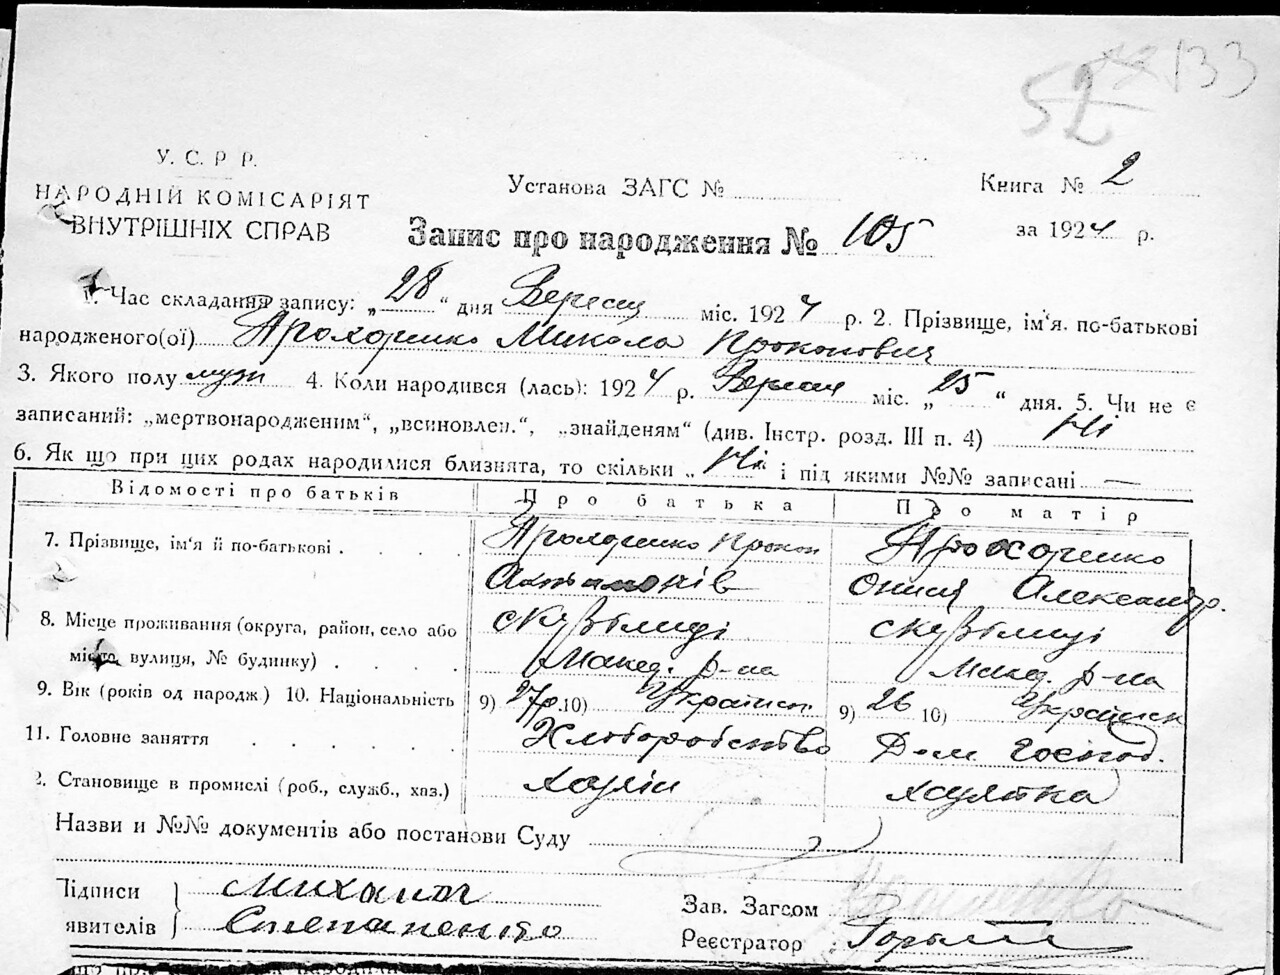 52 133
У. С. Р. Р.
НАРОДНІЙ КОМІСАРІЯТ
ВНУТРІШНІХ СПРАВ
Установа ЗАГС №
Книга № 2
Запис про народження № 105
за 1924 р.
1. Час складання запису: „28“ дня Вересня міс. 1924 р. 2. Прізвище, ім‘я. по-батькові
народженого(ої) Прохоренко Микола Прокопович
3. Якого полу муж 4. Коли народився (лась): 1924 р. Вересня міс. „25“ дня. 5. Чи не є
записаний: „мертвонародженим“, „всиновлен.“, „знайденям“ (див. Інстр. розд. III п. 4) Ні
6. Як що при цих родах народилися близнята, то скільки „Ні і під якими №№ записані —
Відомості про батьків Про батька Про матір
7. Прізвище, ім‘я й по-батькові . Прохоренко Прокоп Прохоренко
Антонів Онися Александр.
8. Місце проживання (округа, район, село або
місто, вулиця, № будинку) Макед. р-на Макед. р-на
9. Вік (років од народж.) 10. Національність 9) 27р. 10) Українськ 9) 26 10) Українськ
11. Головне заняття Хлоборобство Дом. Господ.
2. Становище в промислі (роб., служб., хаз.) хазяін хазяйка
Назви и №№ документів або постанови Суду
Підписи Михайло
явителів Степаненко
Зав. Загсом
Реєстратор